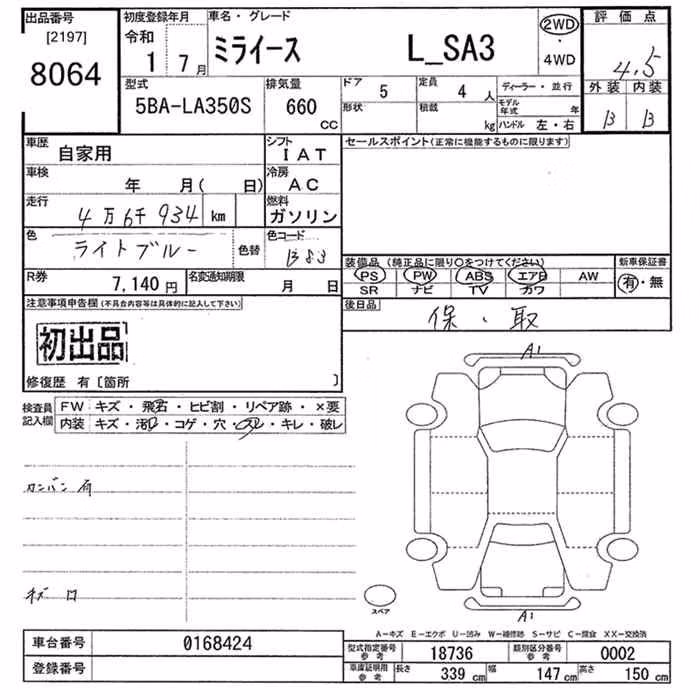 出品番号
[2197]
8064
初度登録年月
令和
1 7月
車名・グレード
ミライース L_SA3
2WD
・
4WD
評価点
4.5
外装 内装
B B
型式
5BA-LA350S
排気量
660
cc
ドア
5
定員
4 人
形状
積載
kg
ディーラー・並行
モデル年式 年
ハンドル 左・右
車歴
自家用
シフト
IAT
車検
年 月( 日)
冷房
AC
走行
4万6千934 km
燃料
ガソリン
色
ライトブルー
色替
色コード
B83
R券
7,140円
名変通知期限
月 日
セールスポイント(正常に機能するものに限ります)
装備品(純正品に限り○をつけてください)
PS PW ABS エアB AW
SR ナビ TV カワ
新車保証書
有・無
後日品
保・取
注意事項申告欄(不具合内容等は具体的に記入して下さい)
初出品
修復歴 有〔箇所 〕
検査員記入欄
FW キズ・飛石・ヒビ割・リペア跡・×要
内装 キズ・汚レ・コゲ・穴・スレ・キレ・破レ
カンバン有
キズ ロ
A1
A1
スペア
A-キズ E-エクボ U-凹み W-補修跡 S-サビ C-腐食 XX-交換済
車台番号
0168424
登録番号
型式指定番号
参考
18736
類別区分番号
参考
0002
車庫証明用
参考
長さ 339 cm 幅 147 cm 高さ 150 cm